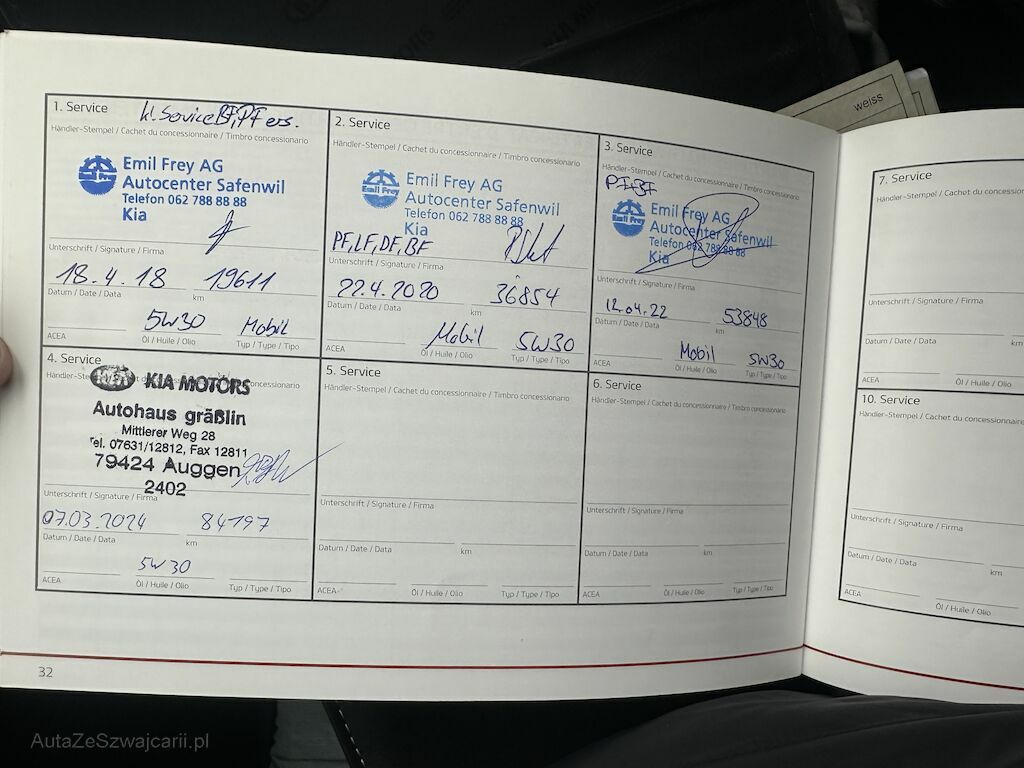 KIA MOTORS
weiss
1. Service
kl. Service BF, PF ers.
Händler-Stempel / Cachet du concessionnaire / Timbro concessionario
Emil Frey AG
Autocenter Safenwil
Telefon 062 788 88 88
Kia
Unterschrift / Signature / Firma
18.4.18 19611
Datum / Date / Data km
5W30 Mobil
ACEA Öl / Huile / Olio Typ / Type / Tipo
2. Service
Händler-Stempel / Cachet du concessionnaire / Timbro concessionario
Emil Frey
Emil Frey AG
Autocenter Safenwil
Telefon 062 788 88 88
Kia
PF, LF, DF, BF
Unterschrift / Signature / Firma
22.4.2020 36854
Datum / Date / Data km
Mobil 5W30
ACEA Öl / Huile / Olio Typ / Type / Tipo
3. Service
Händler-Stempel / Cachet du concessionnaire / Timbro concessionario
PF+BF
Emil Frey
Emil Frey AG
Autocenter Safenwil
Telefon 062 788 88 88
Kia
Unterschrift / Signature / Firma
12.04.22 53848
Datum / Date / Data km
Mobil 5W30
ACEA Öl / Huile / Olio Typ / Type / Tipo
4. Service
Händler-Stempel / Cachet du concessionnaire / Timbro concessionario
KIA MOTORS
Autohaus gräßlin
Mittlerer Weg 28
Tel. 07631/12812, Fax 12811
79424 Auggen
2402
Unterschrift / Signature / Firma
07.03.2024 84197
Datum / Date / Data km
5W30
ACEA Öl / Huile / Olio Typ / Type / Tipo
5. Service
Händler-Stempel / Cachet du concessionnaire / Timbro concessionario
Unterschrift / Signature / Firma
Datum / Date / Data km
ACEA Öl / Huile / Olio Typ / Type / Tipo
6. Service
Händler-Stempel / Cachet du concessionnaire / Timbro concessionario
Unterschrift / Signature / Firma
Datum / Date / Data km
ACEA Öl / Huile / Olio Typ / Type / Tipo
32
7. Service
Händler-Stempel / Cachet du concessionnaire
Unterschrift / Signature / Firma
Datum / Date / Data km
ACEA Öl / Huile / Olio
10. Service
Händler-Stempel / Cachet du concessionnaire
Unterschrift / Signature / Firma
Datum / Date / Data km
ACEA Öl / Huile / Olio
AutaZeSzwajcarii.pl